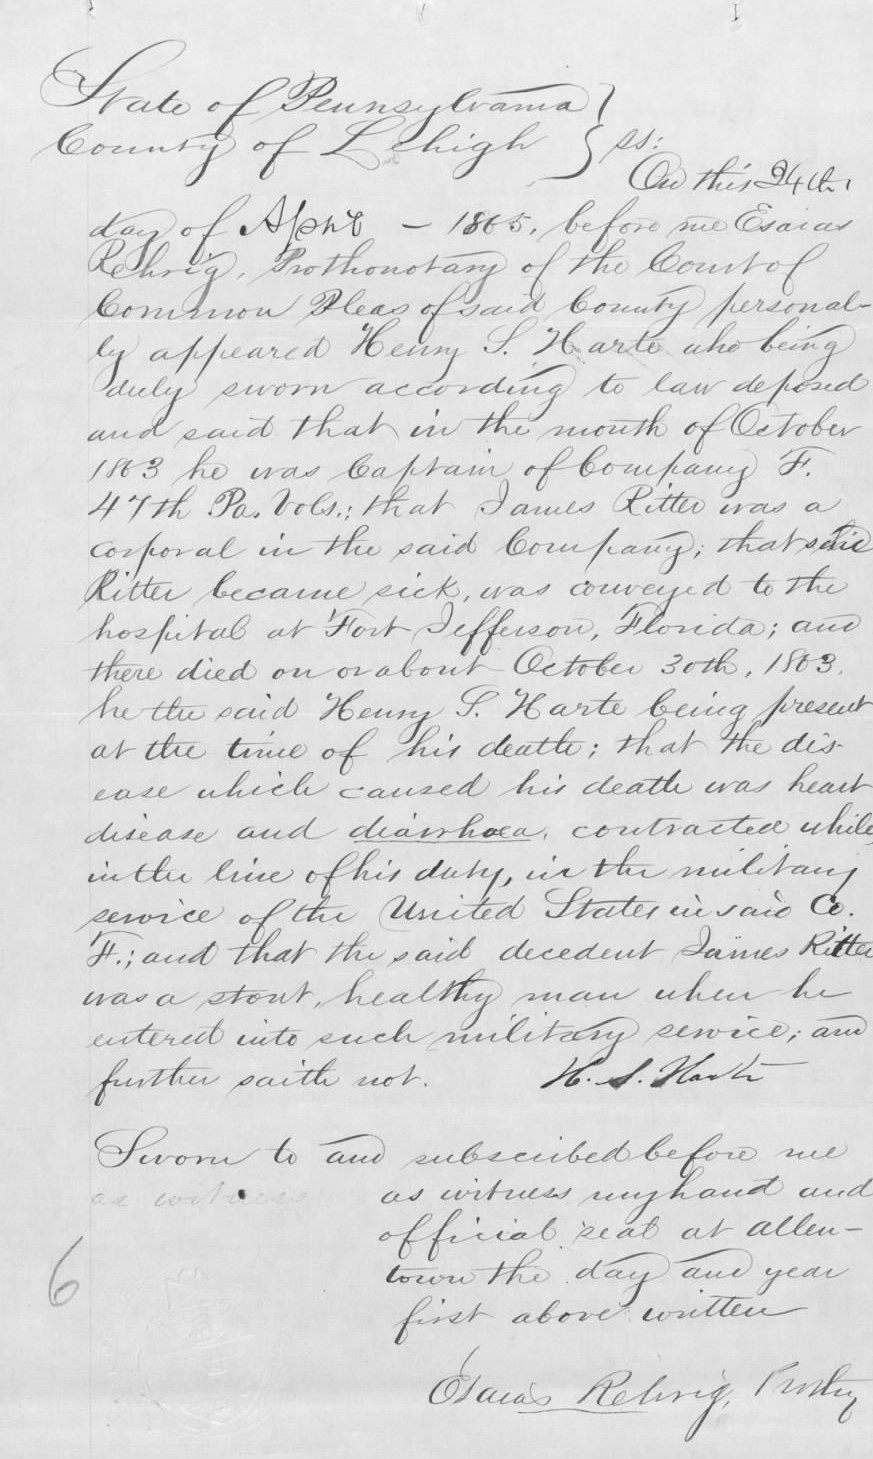 State of Pennsylvania }
County of Lehigh } ss:
On this 24th
day of April — 1865, before me Esaias
Rehrig, Prothonotary of the Court of
Common Pleas of said County personal-
ly appeared Henry S. Harte who being
duly sworn according to law deposed
and said that in the month of October
1863 he was Captain of Company F.
47th Pa. Vols.; that James Ritter was a
corporal in the said Company; that said
Ritter became sick, was conveyed to the
hospital at Fort Jefferson, Florida; and
there died on or about October 30th, 1863.
he the said Henry S. Harte being present
at the time of his death; that the dis-
ease which caused his death was heart
disease and diarrhoea, contracted while
in the line of his duty, in the military
service of the United States in said Co.
F.; and that the said decedent James Ritter
was a stout, healthy man when he
entered into such military service; and
further saith not. H. S. Harte
Sworn to and subscribed before me
as witness as witness my hand and
official seal at Allen-
town the day and year
6
first above written
Esaias Rehrig, Prothy